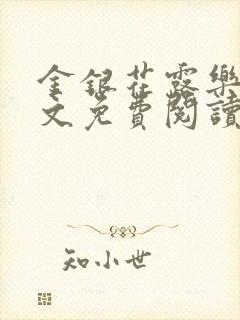 金銀花露樂
文免費閱讀
知小世